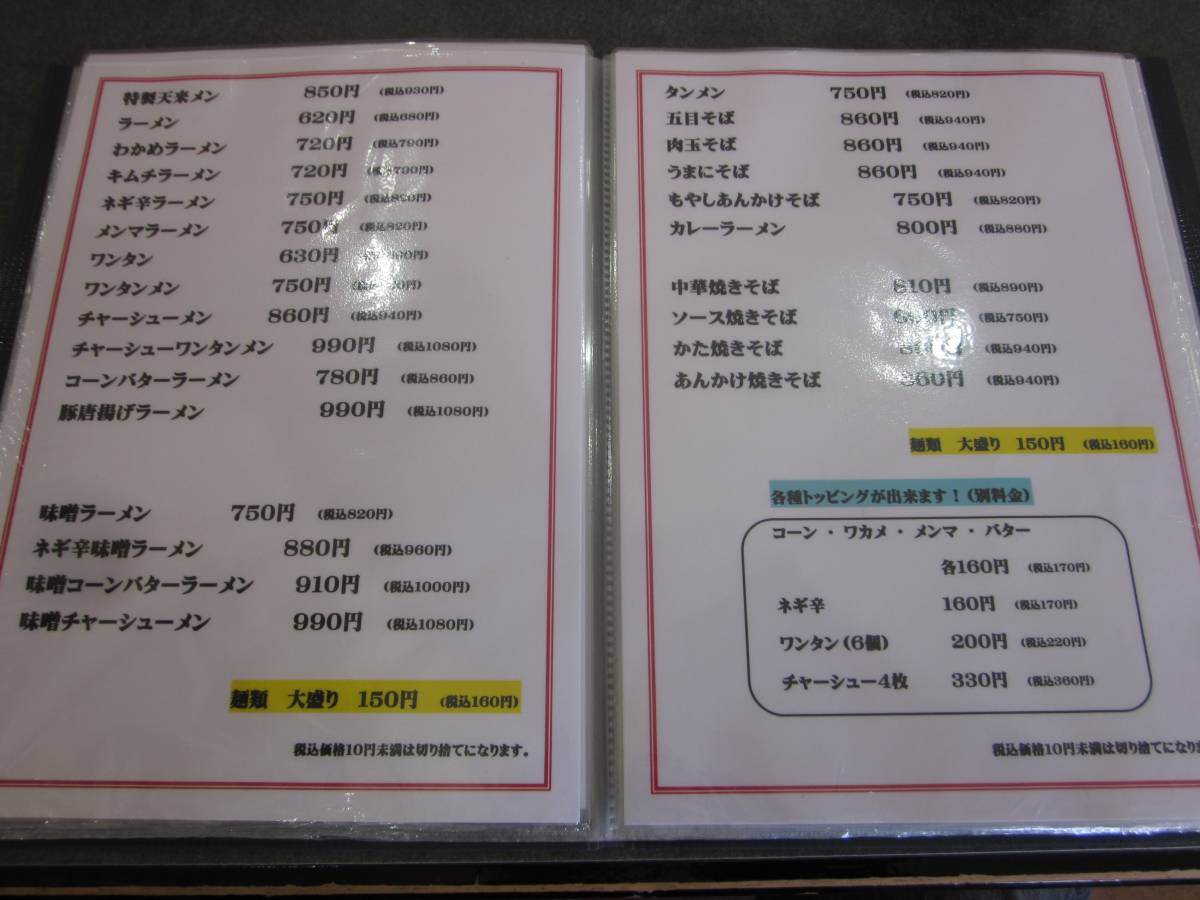 特製天来メン 850円 (税込930円)
ラーメン 620円 (税込680円)
わかめラーメン 720円 (税込790円)
キムチラーメン 720円 (税込790円)
ネギ辛ラーメン 750円 (税込820円)
メンマラーメン 750円 (税込820円)
ワンタン 630円
ワンタンメン 750円
チャーシューメン 860円 (税込940円)
チャーシューワンタンメン 990円 (税込1080円)
コーンバターラーメン 780円 (税込860円)
豚唐揚げラーメン 990円 (税込1080円)
味噌ラーメン 750円 (税込820円)
ネギ辛味噌ラーメン 880円 (税込960円)
味噌コーンバターラーメン 910円 (税込1000円)
味噌チャーシューメン 990円 (税込1080円)
麺類 大盛り 150円 (税込160円)
税込価格10円未満は切り捨てになります。
タンメン 750円 (税込820円)
五目そば 860円 (税込940円)
肉玉そば 860円 (税込940円)
うまにそば 860円 (税込940円)
もやしあんかけそば 750円 (税込820円)
カレーラーメン 800円 (税込880円)
中華焼きそば 810円 (税込890円)
ソース焼きそば (税込750円)
かた焼きそば (税込940円)
あんかけ焼きそば 860円 (税込940円)
麺類 大盛り 150円 (税込160円)
各種トッピングが出来ます！(別料金)
コーン・ワカメ・メンマ・バター
各160円 (税込170円)
ネギ辛 160円 (税込170円)
ワンタン(6個) 200円 (税込220円)
チャーシュー4枚 330円 (税込360円)
税込価格10円未満は切り捨てになり